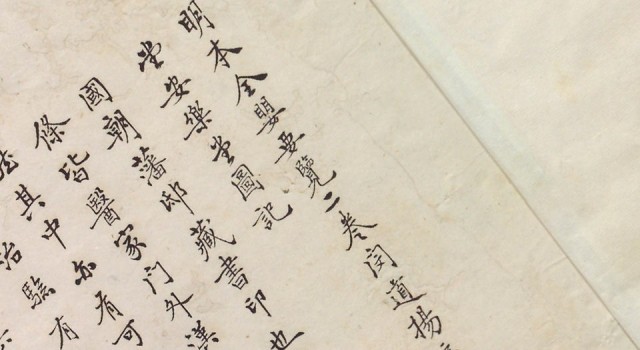 明本全嬰要覽二卷閔道揚
堂安樂堂圖記
國朝藩邸藏書印也
條皆醫家門外漢
其中亦有可
治驗有